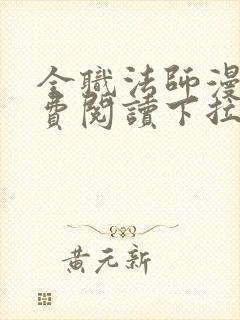 全職法師漫
費閱讀下拉
黃元新